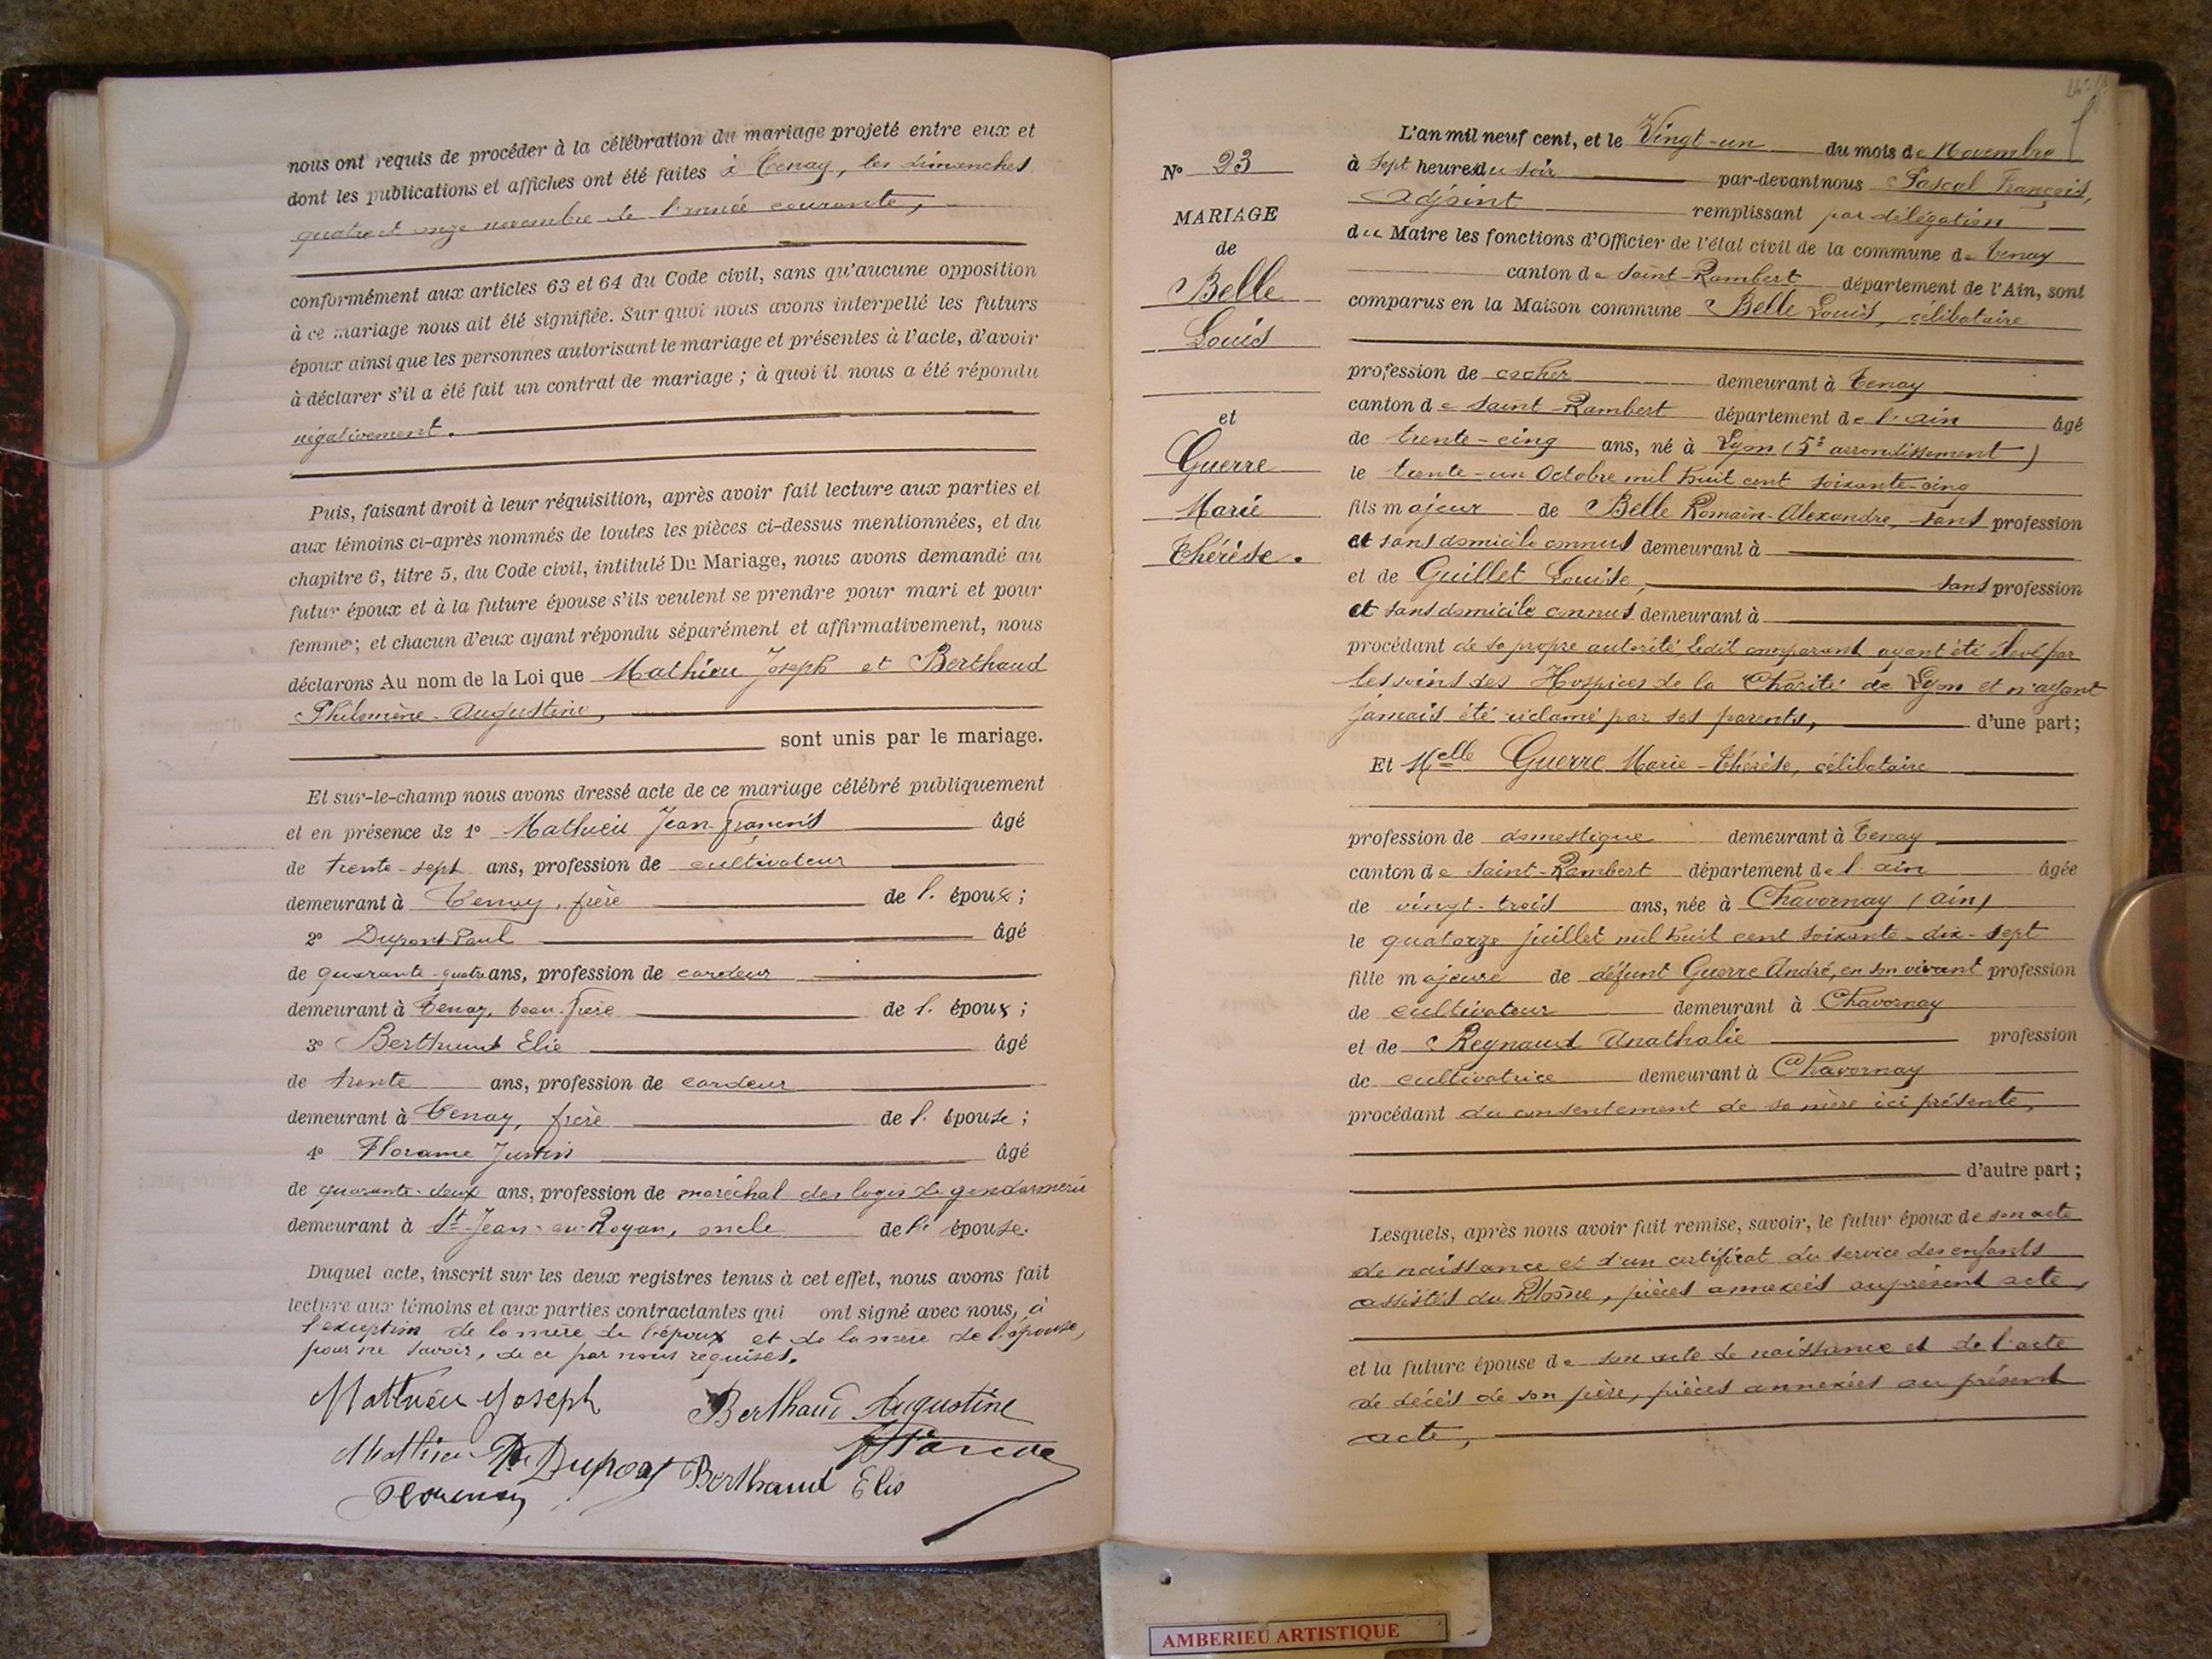 nous ont requis de procéder à la célébration du mariage projeté entre eux et
dont les publications et affiches ont été faites à Tenay, les dimanches
quatre et onze novembre de l'année courante,
conformément aux articles 63 et 64 du Code civil, sans qu'aucune opposition
à ce mariage nous ait été signifiée. Sur quoi nous avons interpellé les futurs
époux ainsi que les personnes autorisant le mariage et présentes à l'acte, d'avoir
à déclarer s'il a été fait un contrat de mariage ; à quoi il nous a été répondu
négativement.
Puis, faisant droit à leur réquisition, après avoir fait lecture aux parties et
aux témoins ci-après nommés de toutes les pièces ci-dessus mentionnées, et du
chapitre 6, titre 5, du Code civil, intitulé Du Mariage, nous avons demandé au
futur époux et à la future épouse s'ils veulent se prendre pour mari et pour
femme ; et chacun d'eux ayant répondu séparément et affirmativement, nous
déclarons Au nom de la Loi que Mathieu Joseph et Berthaud
Philomène-Augustine,
sont unis par le mariage.
Et sur-le-champ nous avons dressé acte de ce mariage célébré publiquement
et en présence de 1° Mathieu Jean-François âgé
de trente-sept ans, profession de cultivateur
demeurant à Tenay, frère de l. époux ;
2° Dupont Paul âgé
de quarante-quatre ans, profession de cardeur
demeurant à Tenay, beau-frère de l. époux ;
3° Berthaud Elie âgé
de trente ans, profession de cardeur
demeurant à Tenay, frère de l. épouse ;
4° Justin âgé
de quarante-deux ans, profession de maréchal des logis de gendarmerie
demeurant à St-Jean-en-Royan, oncle de l. épouse.
Duquel acte, inscrit sur les deux registres tenus à cet effet, nous avons fait
lecture aux témoins et aux parties contractantes qui ont signé avec nous, à
l'exception de la mère de l'époux et de la mère de l'épouse,
pour ne savoir, de ce par nous requises.
Mathieu Joseph Berthaud Augustine
Mathieu Dupont Berthaud Elie
N° 23
MARIAGE
de
Belle
Louis
et
Guerre
Marie
Thérèse.
L'an mil neuf cent, et le Vingt-un du mois de Novembre
à sept heures du soir par-devant nous Pascal François,
Adjoint remplissant par délégation
du Maire les fonctions d'Officier de l'état civil de la commune de Tenay
canton de Saint-Rambert département de l'Ain, sont
comparus en la Maison commune Belle Louis, célibataire
profession de cocher demeurant à Tenay
canton de Saint-Rambert département de l'ain âgé
de trente-cinq ans, né à Lyon (5e arrondissement)
le trente-un Octobre mil huit cent soixante-cinq
fils majeur de Belle Romain-Alexandre, sans profession
et sans domicile connus demeurant à
et de Guillet Louise, sans profession
et sans domicile connus demeurant à
procédant de sa propre autorité ledit comparant ayant été élevé par
les soins des Hospices de la Charité de Lyon et n'ayant
jamais été réclamé par ses parents, d'une part ;
Et Melle Guerre Marie-Thérèse, célibataire
profession de domestique demeurant à Tenay
canton de Saint-Rambert département de l'ain âgée
de vingt-trois ans, née à Chavornay (ain)
le quatorze juillet mil huit cent soixante-dix-sept
fille majeure de défunt Guerre André, en son vivant profession
de cultivateur demeurant à Chavornay
et de Reynaud Anathalie profession
de cultivatrice demeurant à Chavornay
procédant du consentement de sa mère ici présente,
d'autre part ;
Lesquels, après nous avoir fait remise, savoir, le futur époux de son acte
de naissance et d'un certificat du service des enfants
assistés du Rhône, pièces annexées au présent acte,
et la future épouse de son acte de naissance et de l'acte
de décès de son père, pièces annexées au présent
acte,
AMBERIEU ARTISTIQUE